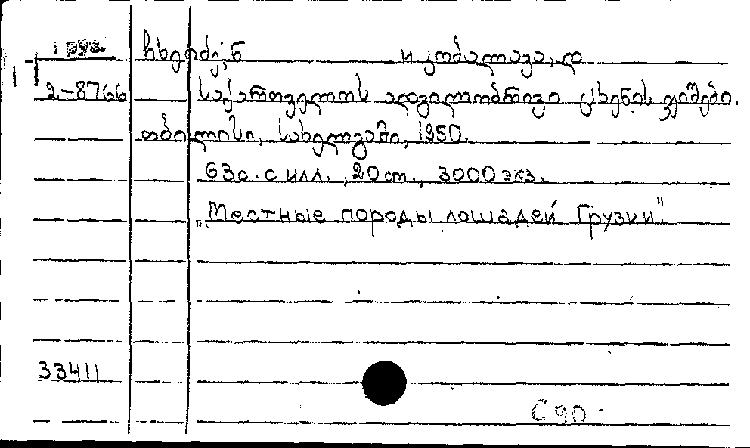 1 груз. ჩხეიძე, ნ и კობალავა, დ
2-8766 საქართველოს ადგილობრივი ცხენის ჯიშები.
თბილისი, სახელგამი, 1950.
63с. с илл., 20 cm., 3000 экз.
„Местные породы лошадей Грузии"
33411
С 90